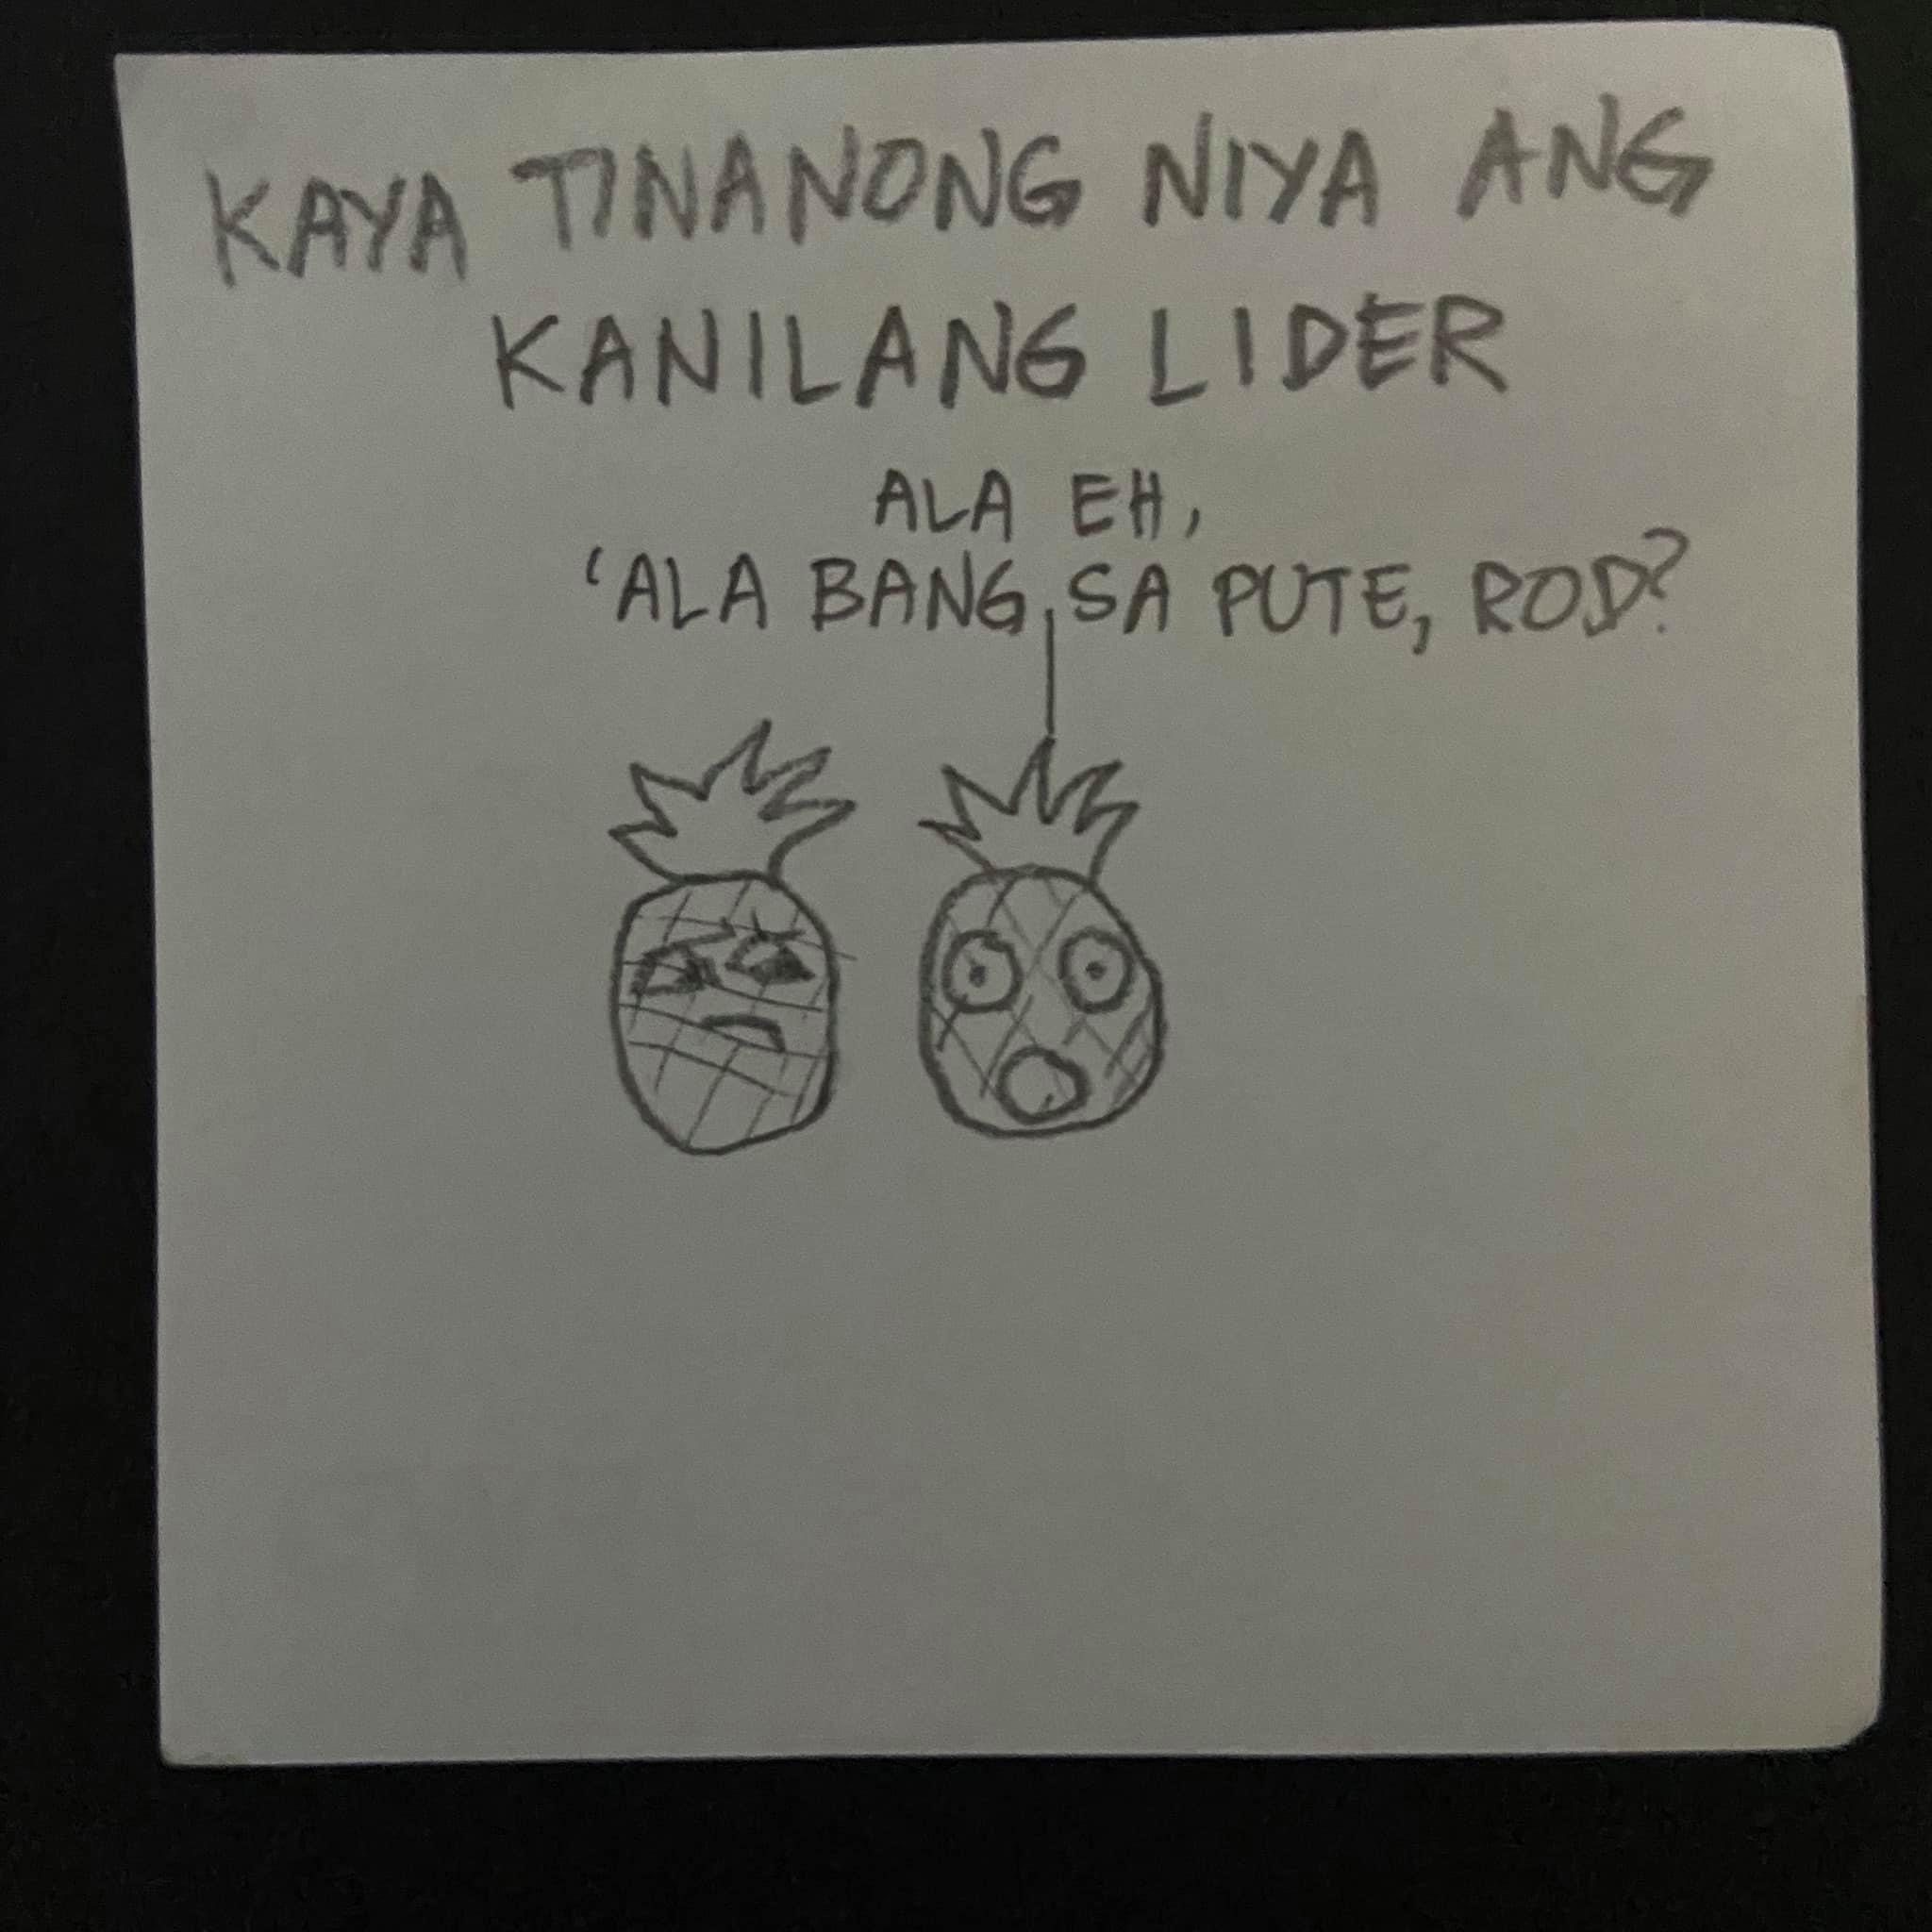 KAYA TINANONG NIYA ANG
KANILANG LIDER
ALA EH,
'ALA BANG SA PUTE, ROD?